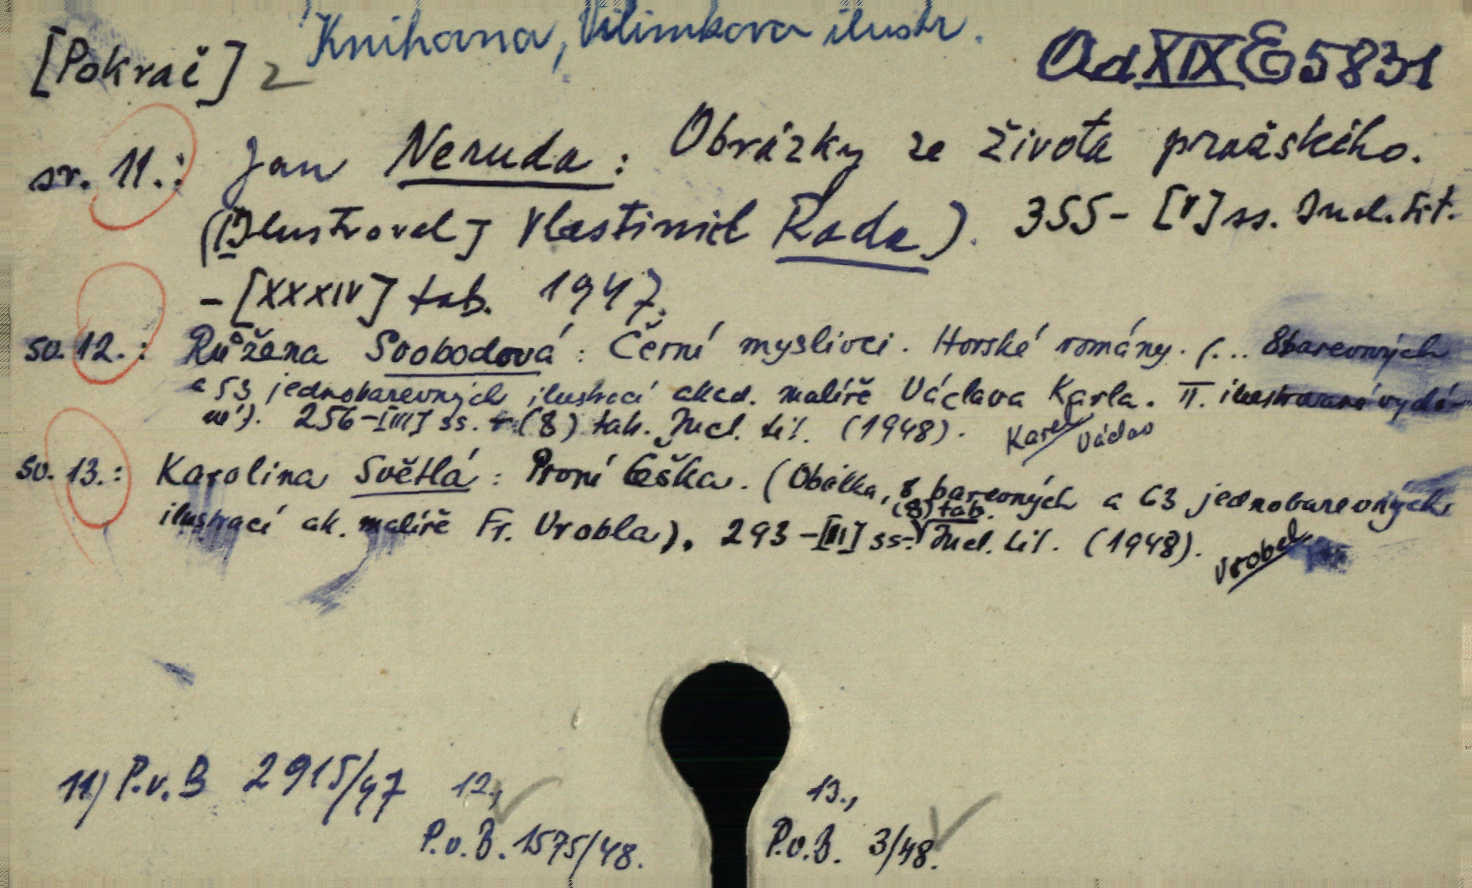 Knihovna, Vilímkova ilustr.
[Pokrač] 2
Od XIX E 5831
sv. 11.: Jan Neruda: Obrázky ze života pražského.
([I]lustroval] Vlastimil Rada). 355-[V] ss. Incl. tit.
- [XXXIV] tab. 1947.
sv. 12.: Růžena Svobodová: Černí myslivci. Horské romány. (... 8 barevných
a 53 jednobarevných ilustrací akad. malíře Václava Karla. II. ilustrované vydá-
ní). 256-[III] ss. + (8) tab. Incl. tit. (1948). Karel Václav
sv. 13.: Karolina Světlá: První Češka. (Obálka, 8 barevných a 63 jednobarevných
(8) tab.
ilustrací ak. malíře Fr. Vrobla). 293-[III] ss. Incl. tit. (1948). Vrobel
11) P.v.B 2915/47
12., P.v.B. 1575/48.
13., P.v.B. 3/48.